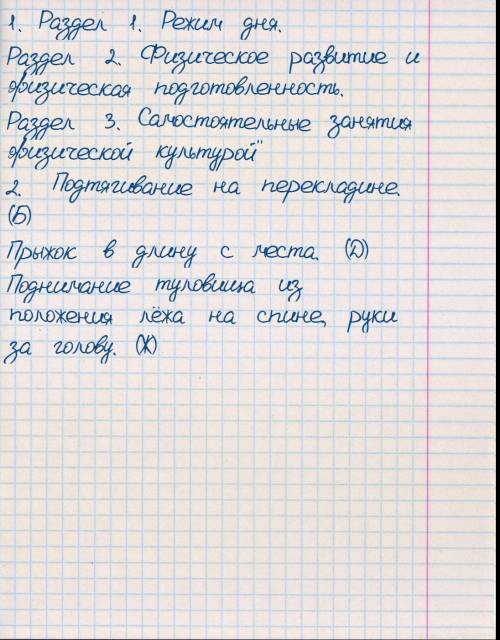 1. Раздел 1. Режим дня.
Раздел 2. Физическое развитие и
физическая подготовленность.
Раздел 3. Самостоятельные занятия
физической культурой"
2. Подтягивание на перекладине.
(Б)
Прыжок в длину с места. (Д)
Поднимание туловища из
положения лёжа на спине, руки
за голову. (Ж)